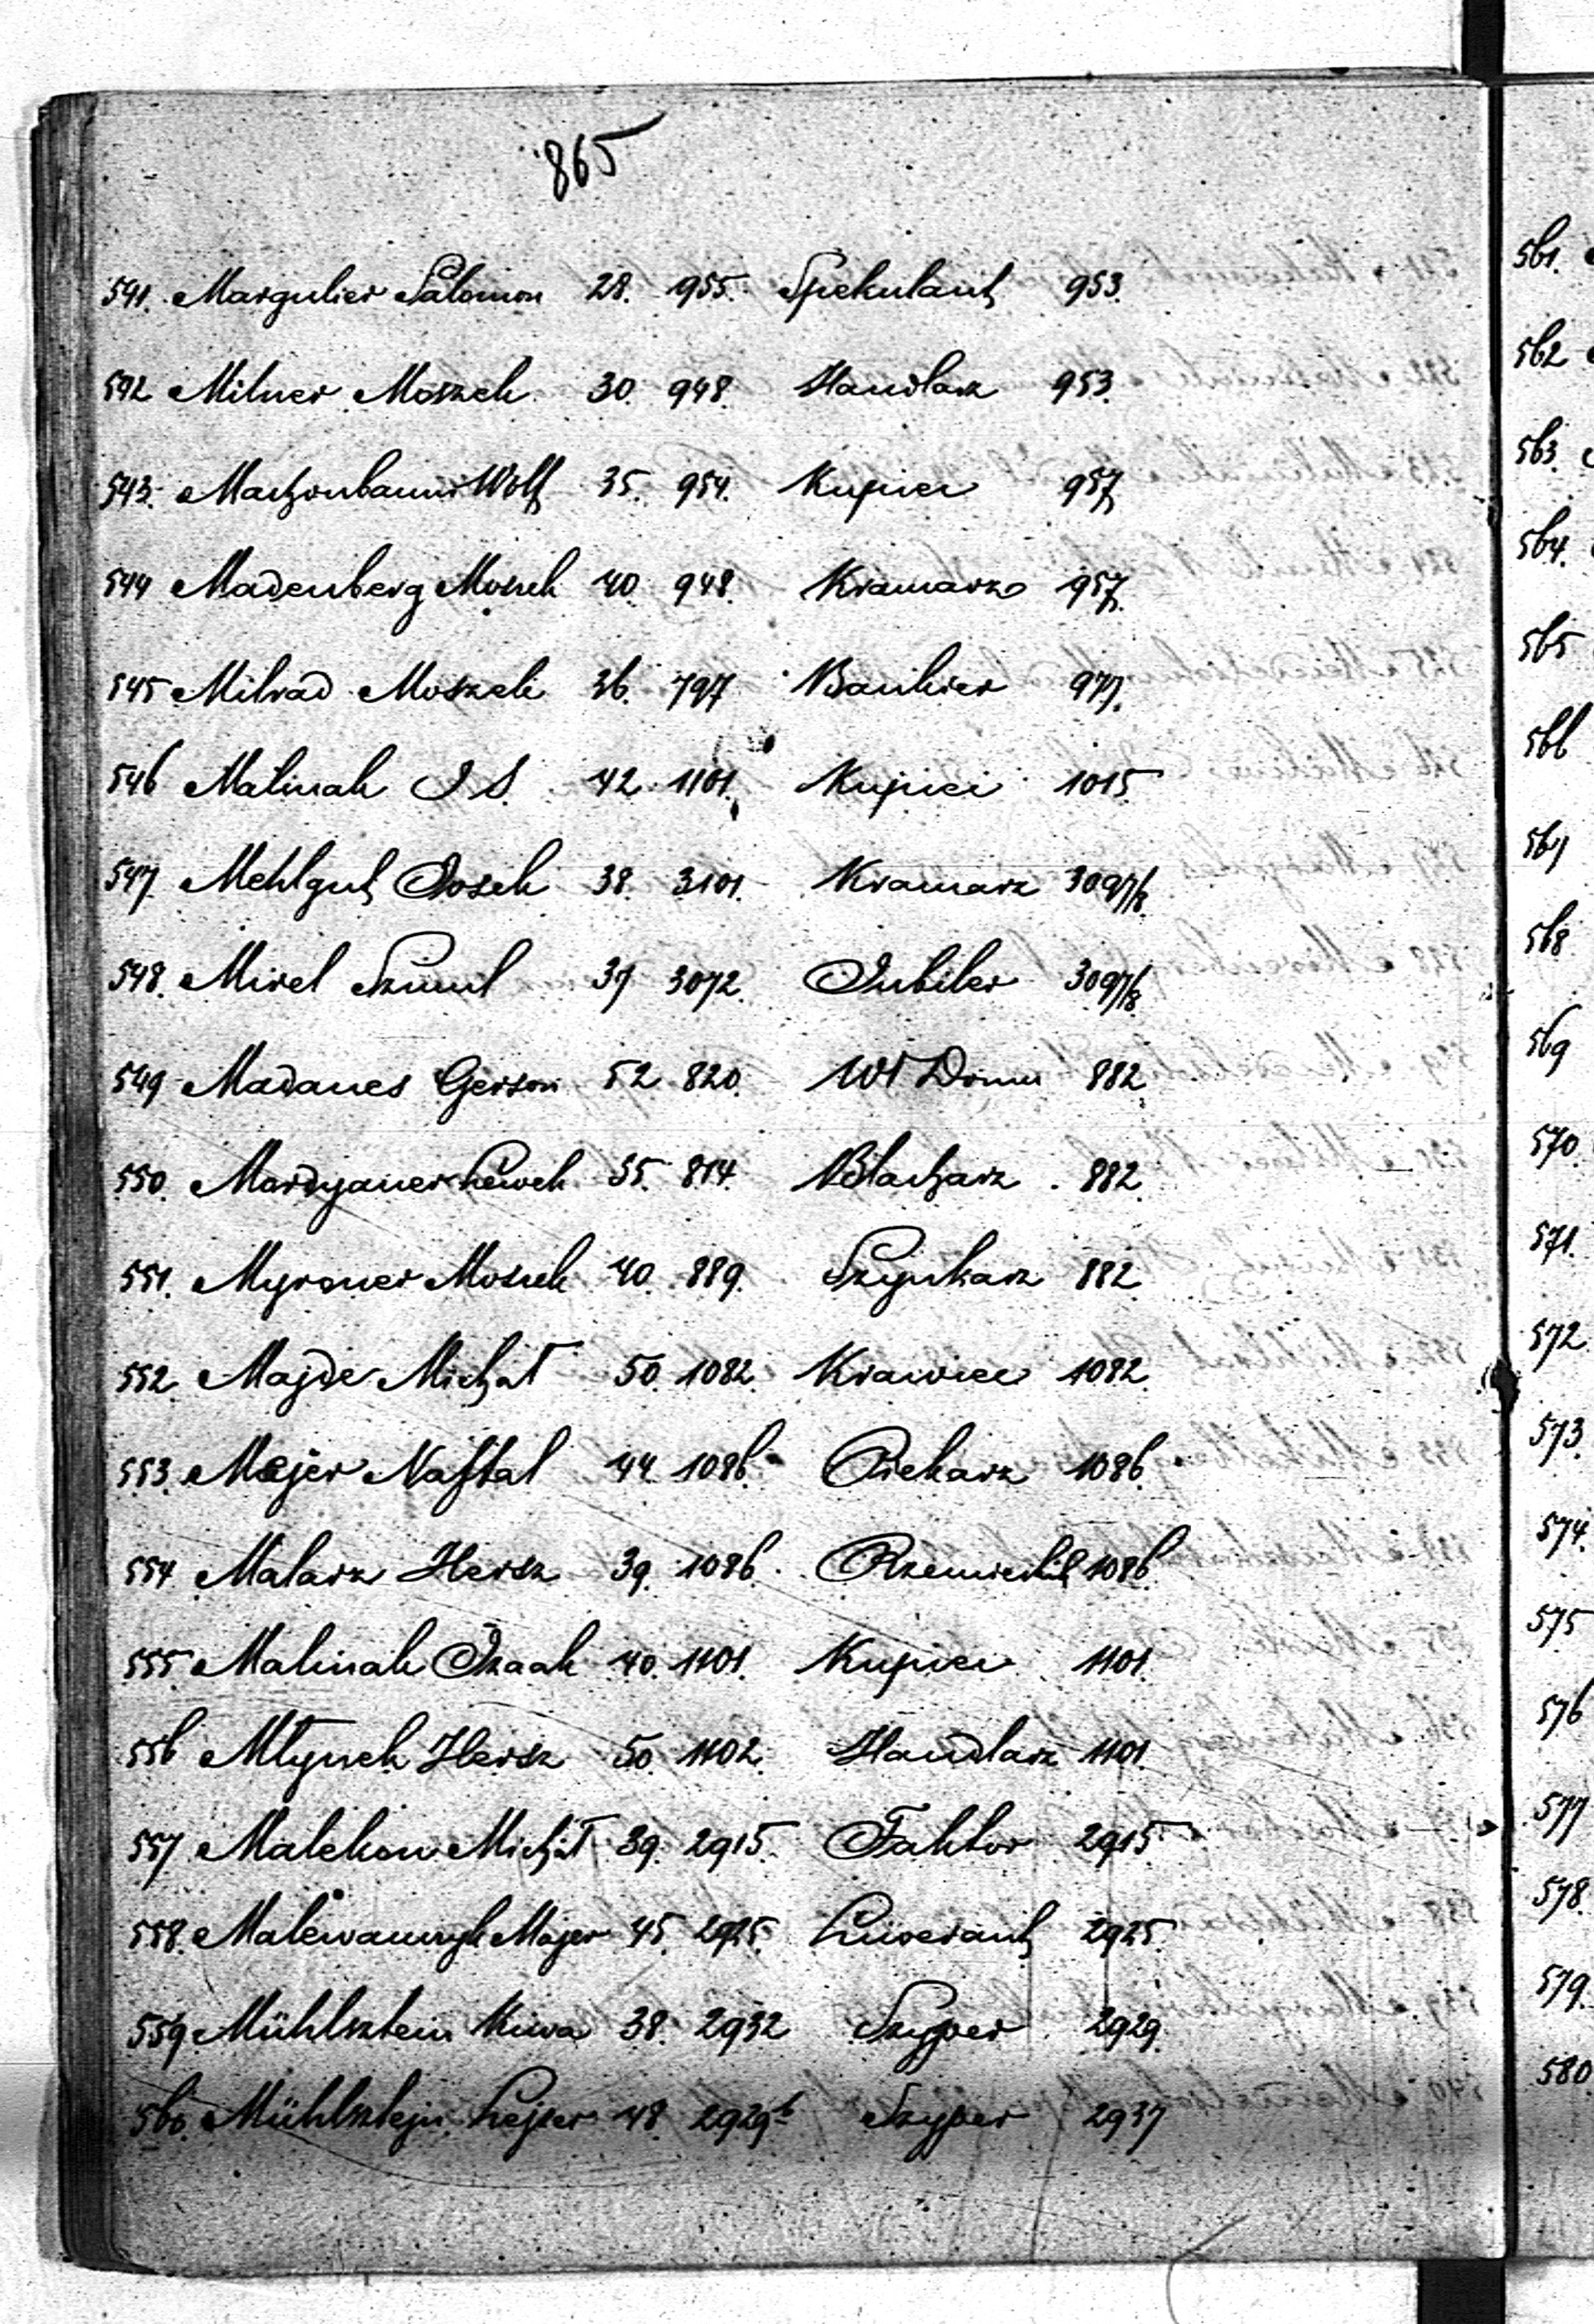 865
541. Margulies Salomon 28. 955. Spekulant 953.
542 Milner Moszek 30. 948. Handlarz 953.
543. Marzonbaum Wolf 35. 954. Kupiec 957
544 Madenberg Mosiek 40. 948. Kramarz 957.
545 Milrad Moszek 36. 797 Bankier 977.
546 Malinak I S. 42. 1101. Kupiec 1015
547 Mehlgut Josek 38. 3101. Kramarz 3097/8.
548. Mirel Szmul 37 3072. Jubiler 3097/8.
549 Madanes Gerson 52 820. Wł Domu 882
550. Mordyaner Lewek 35. 814. Blacharz 882.
551. Myroner Mosiek 40. 889. Szynkarz 882
552 Majde Michał 50. 1082. Krawiec 1082.
553. Majer Naftal 44. 1086. Piekarz 1086.
554 Malarz Hersz 39. 1086. Rzemieślnik 1086.
555 Malinak Izaak 40. 1101. Kupiec 1101.
556 Młynek Hersz 50. 1102. Handlarz 1101.
557 Malekow Michał 39. 2915. Faktor 2915
558. Malewanczyk Majer 45. 2925. Liwerant 2925.
559 Mühlsztein Kiwa 38. 2932 Szyper 2929.
560. Mühlsztejn Lejzer 48. 2929b Szyper 2937
561.
562
563.
564.
565
566
567
568
569
570.
571.
572.
573.
574.
575
576
577
578.
579.
580